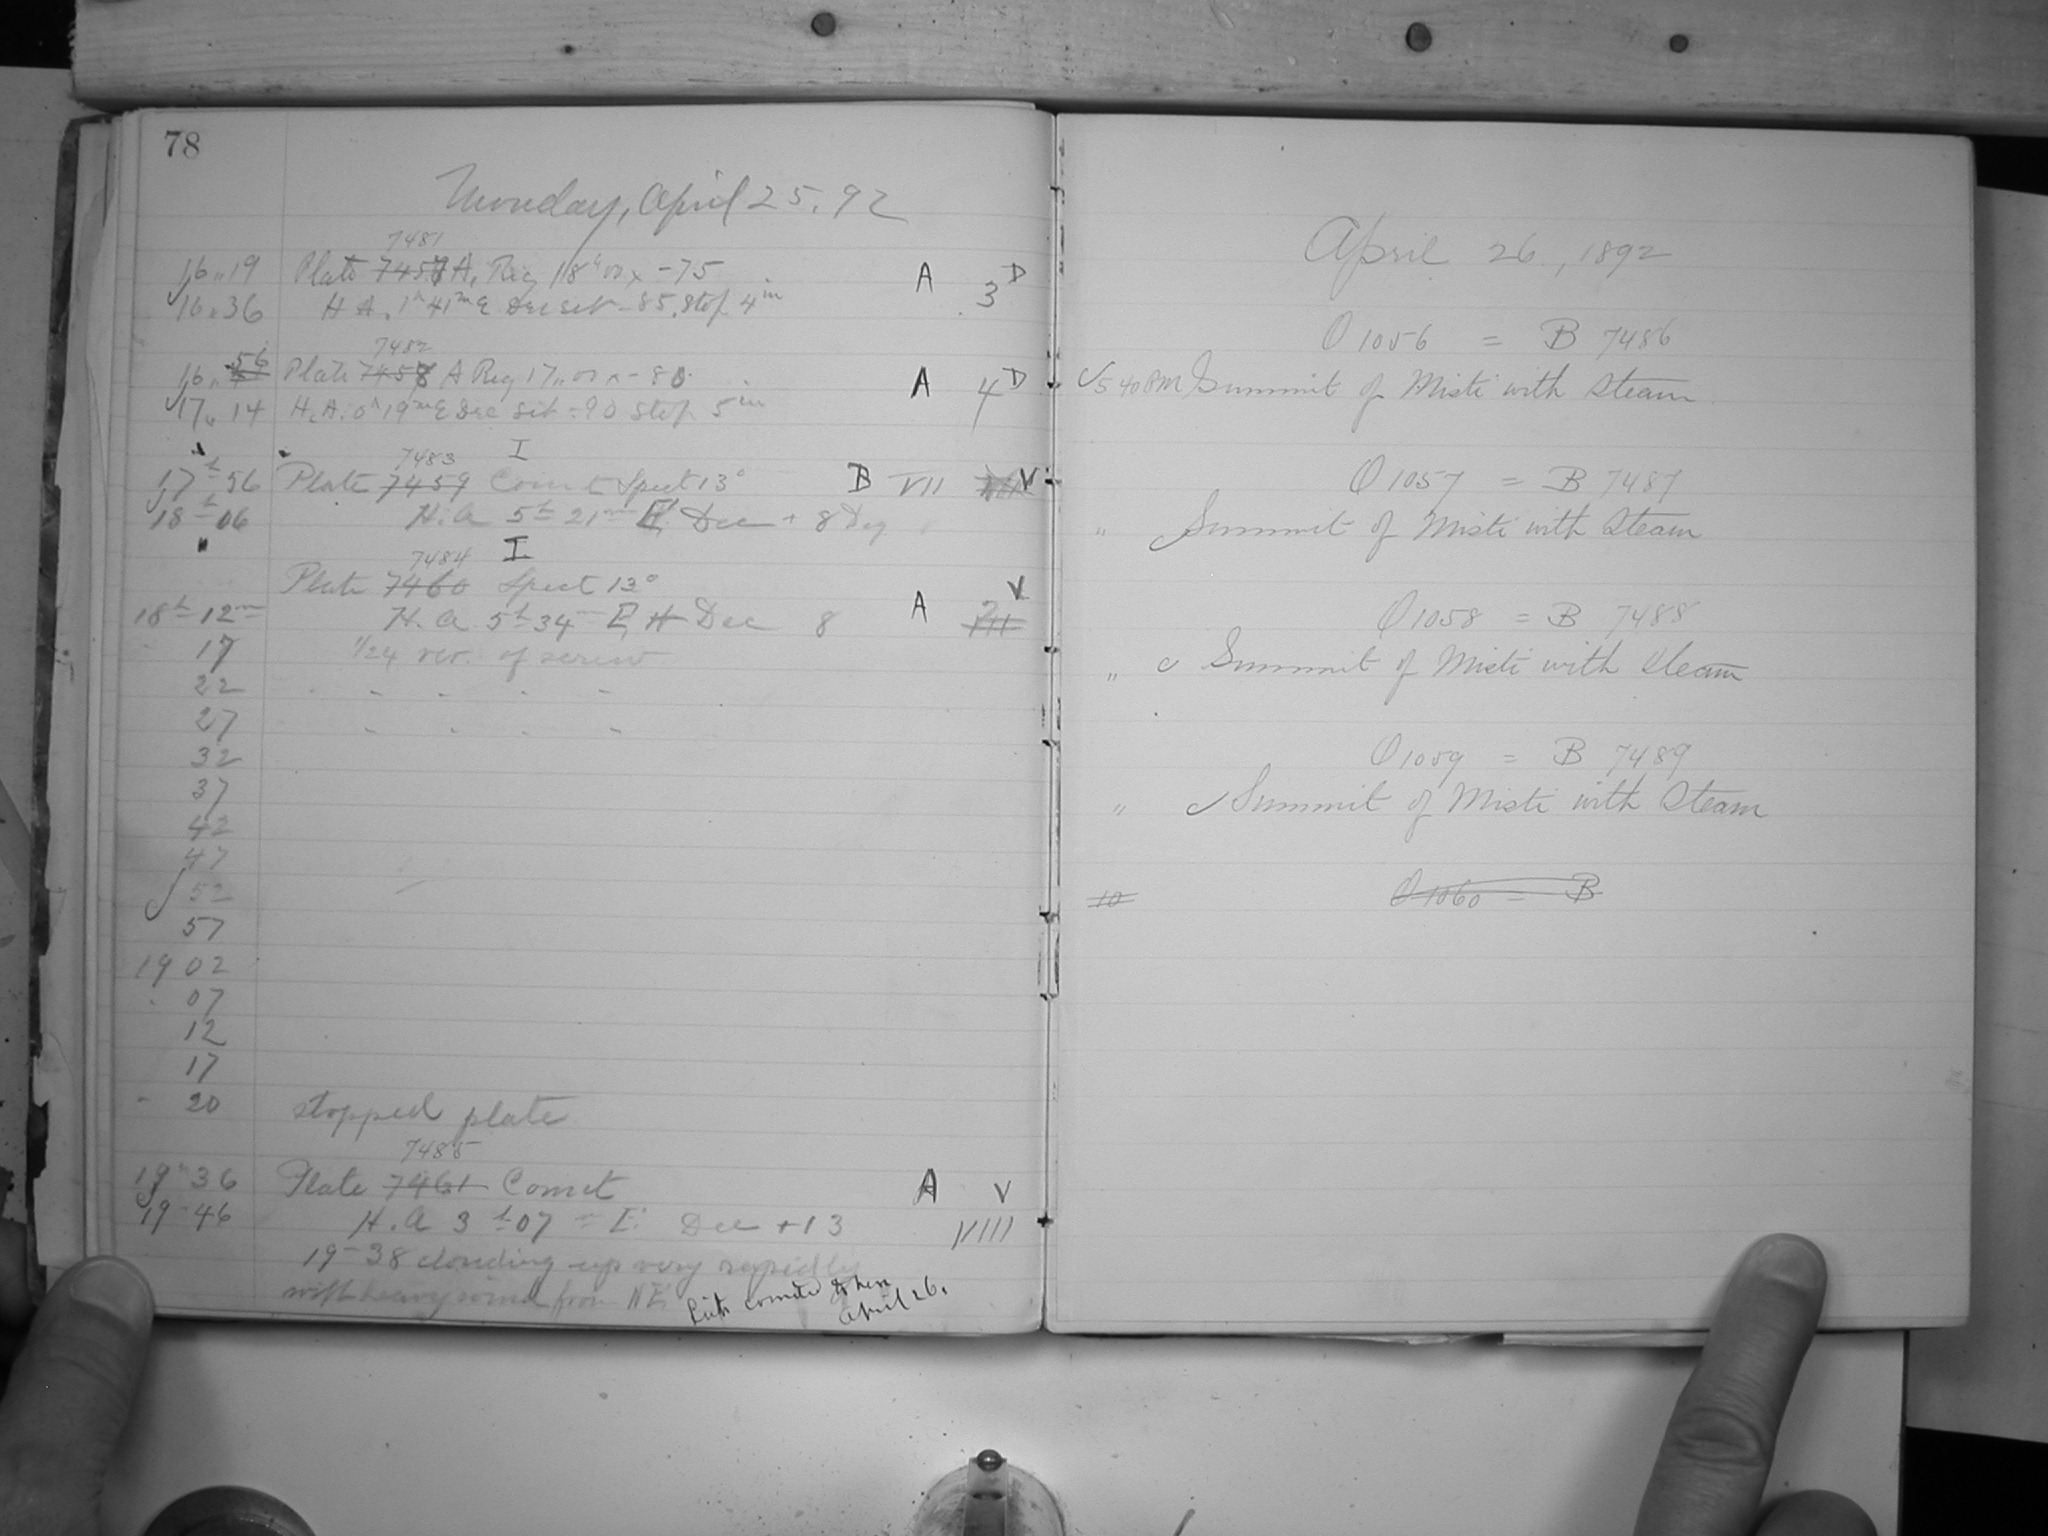 78
Monday, April 25. 92
7481
16 19 Plate 7457 A, Reg 18h 00 x -75 A 3 D
16 36 H A. 1h 41m E Dec set -85. Stop 4 in
7482
16 56 Plate 7458 A Reg 17 00 x -80 A 4 D
17 14 H. A. 0h 19m E Dec Set -90 Stop 5 in
7483 I
17h 56 Plate 7459 Comet Spect 13° B VII V
18h 06 H. A 5h 21m E Dec + 8 Deg
7484 I
Plate 7460 Spect 13° V
18h 12m H. A 5h 34m E H Dec 8 A VII
17 1/24 rev. of screw
22 " " " " "
27 " " " "
32
37
42
47
52
57
19 02
07
12
17
20 stopped plate
7485
19h 36 Plate 7461 Comet A V
19 46 H. A 3h 07m E. Dec +13 VIII
19-38 clouding up very rapidly
with heavy wind from NE.
April 26.
April 26, 1892
O 1056 = B 7486
5 40 PM Summit of Misti with Steam
O 1057 = B 7487
" Summit of Misti with Steam
O 1058 = B 7488
" Summit of Misti with Steam
O 1059 = B 7489
" Summit of Misti with Steam
10 O 1060 = B